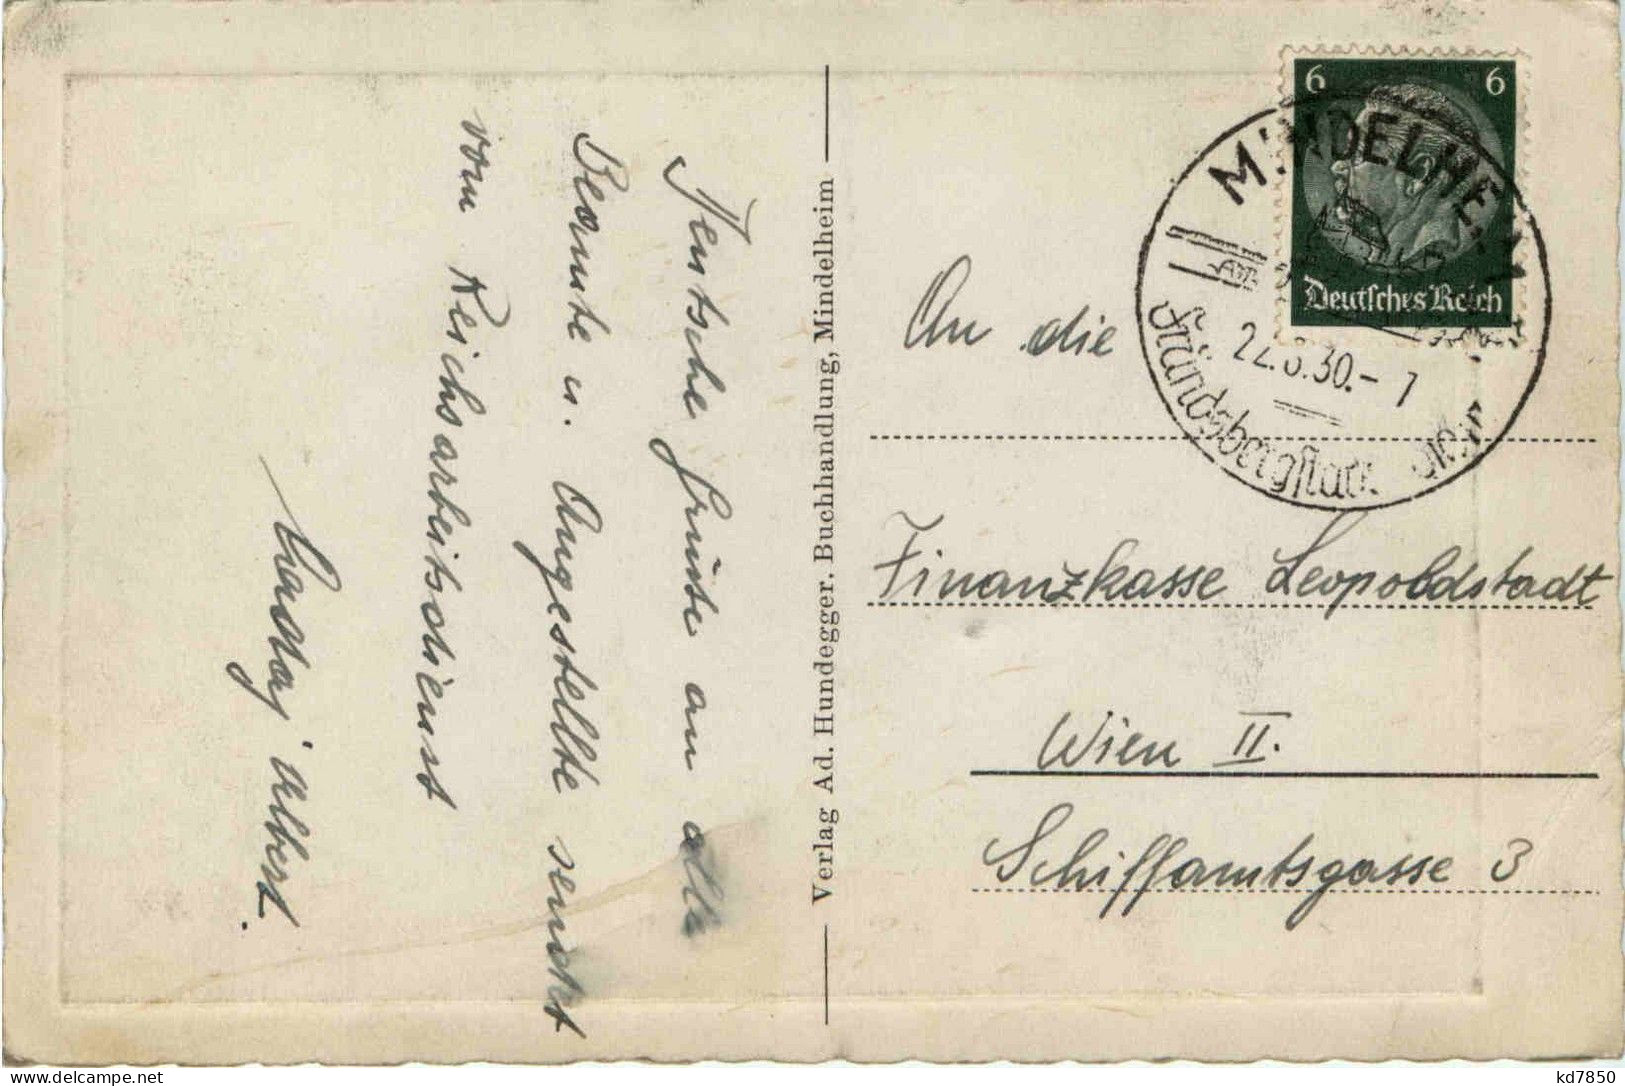 Deutsche Grüsse an alle
Beamte u. Angestellte sendet
vom Reichsarbeitsdienst
Albert.
Verlag Ad. Hundegger. Buchhandlung, Mindelheim
6 6
Deutsches Reich
MINDELHEIM
22.8.30.-7
Frundsbergstadt
An die
Finanzkasse Leopoldstadt
Wien II.
Schiffamtsgasse 3
kd7850